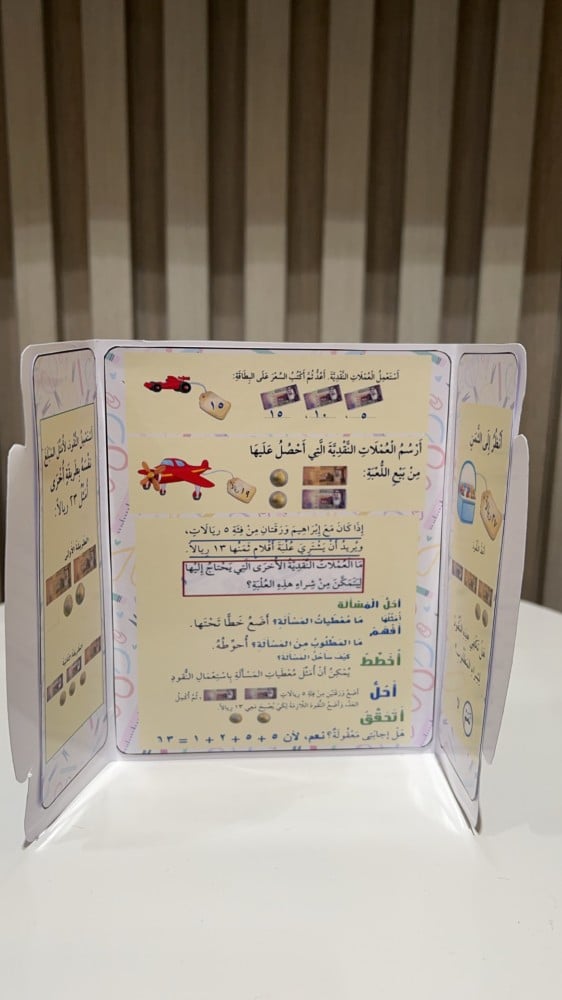 أَسْتَعْمِلُ الْعُمْلَاتِ النَّقْدِيَّةَ. أَعُدُّ ثُمَّ أَكْتُبُ السِّعْرَ عَلَى الْبِطَاقَةِ:
١٥
٥ ١٠ ١٥
أَرْسُمُ الْعُمْلَاتِ النَّقْدِيَّةَ الَّتِي أَحْصُلُ عَلَيْهَا
مِنْ بَيْعِ اللُّعْبَةِ:
إِذَا كَانَ مَعَ إِبْرَاهِيمَ وَرَقَتَانِ مِنْ فِئَةِ ٥ رِيَالَاتٍ،
وَيُرِيدُ أَنْ يَشْتَرِيَ عُلْبَةَ أَقْلَامٍ ثَمَنُهَا ١٣ رِيالًا.
مَا الْعُمْلَاتُ النَّقْدِيَّةُ الْأُخْرَى الَّتِي يَحْتَاجُ إِلَيْهَا
لِيَتَمَكَّنَ مِنْ شِرَاءِ هذِهِ الْعُلْبَةِ؟
أَحُلُّ الْمَسْأَلَةَ
أَفْهَمُ
مَا مُعْطَيَاتُ الْمَسْأَلَةِ؟ أَضَعُ خَطًّا تَحْتَهَا.
مَا الْمَطْلُوبُ مِنَ الْمَسْأَلَةِ؟ أُحَوِّطُهُ.
أُخَطِّطُ
كَيْفَ سَأَحُلُّ الْمَسْأَلَةَ؟
يُمْكِنُ أَنْ أُمَثِّلَ مُعْطَيَاتِ الْمَسْأَلَةِ بِاسْتِعْمَالِ النُّقُودِ
أَحُلُّ
أَضَعُ وَرَقَتَيْنِ مِنْ فِئَةِ ٥ رِيَالَاتٍ
أَتَحَقَّقُ
هَلْ إِجَابَتِي مَعْقُولَةٌ؟ نعم، لأن ٥ + ٥ + ٢ + ١ = ١٣
نَفْسَهُ بِطَرِيقَةٍ أُخْرَى
أُمَثِّلُ ٢٣ رِيالًا:
أَنْظُرُ إِلَى الثَّمَنِ